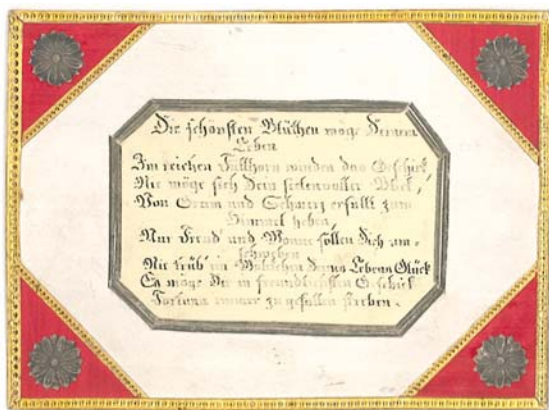 Die schönsten Blüthen möge Deinem
Leben
Im reichen Füllhorn winden das Geschick
Nie möge sich Dein seelenvoller Blick,
Von Gram und Schmerz erfüllt zum
Himmel heben,
Nur Freud und Wonne sollen Dich um-
schweben
Nie trüb' ein Wölkchen Lebens Glück
Es möge Dir in freundlichsten Geschick
Fortuna immer zu gefallen streben.